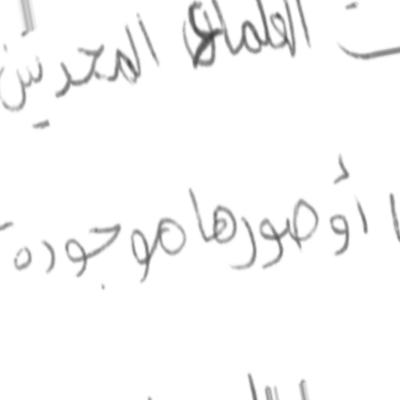 العلماء المحدثين
أو صورها موجوده